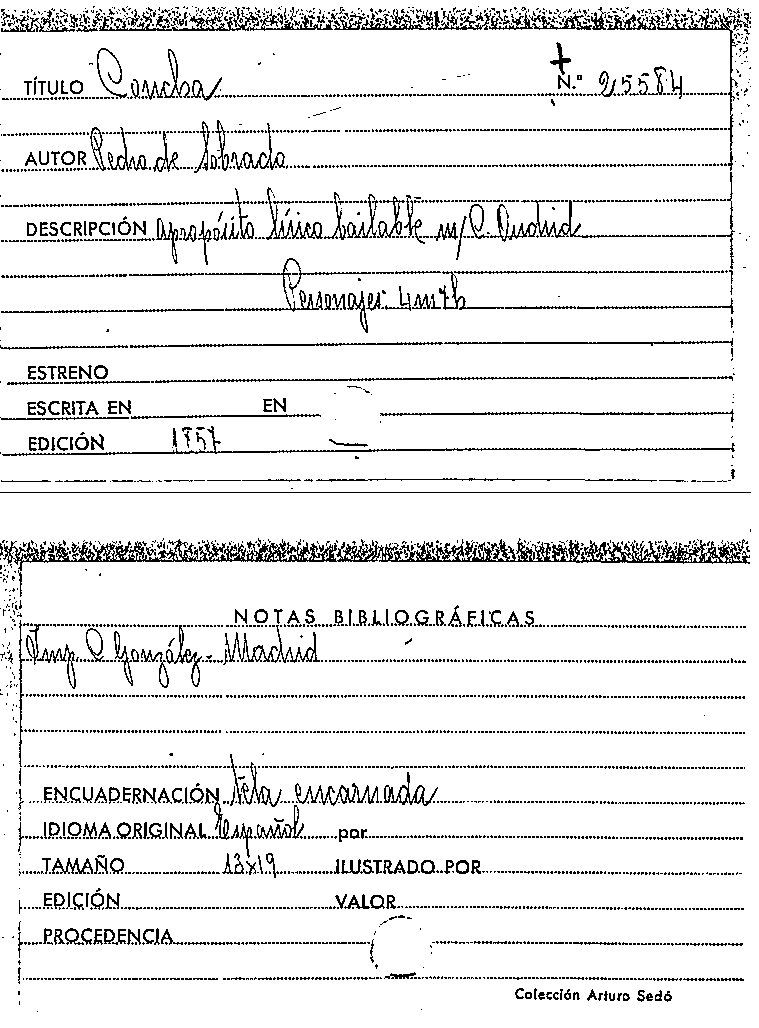 TÍTULO Concha N.º 25584
AUTOR Pedro de Sobrado
DESCRIPCIÓN apropósito lírico bailable m/ C. Oudrid
Personajes: 4m7h
ESTRENO
ESCRITA EN EN
EDICIÓN 1857
NOTAS BIBLIOGRÁFICAS
Imp. C González - Madrid
ENCUADERNACIÓN tela encarnada
IDIOMA ORIGINAL Español por
TAMAÑO 13x19 ILUSTRADO POR
EDICIÓN VALOR
PROCEDENCIA
Colección Arturo Sedó